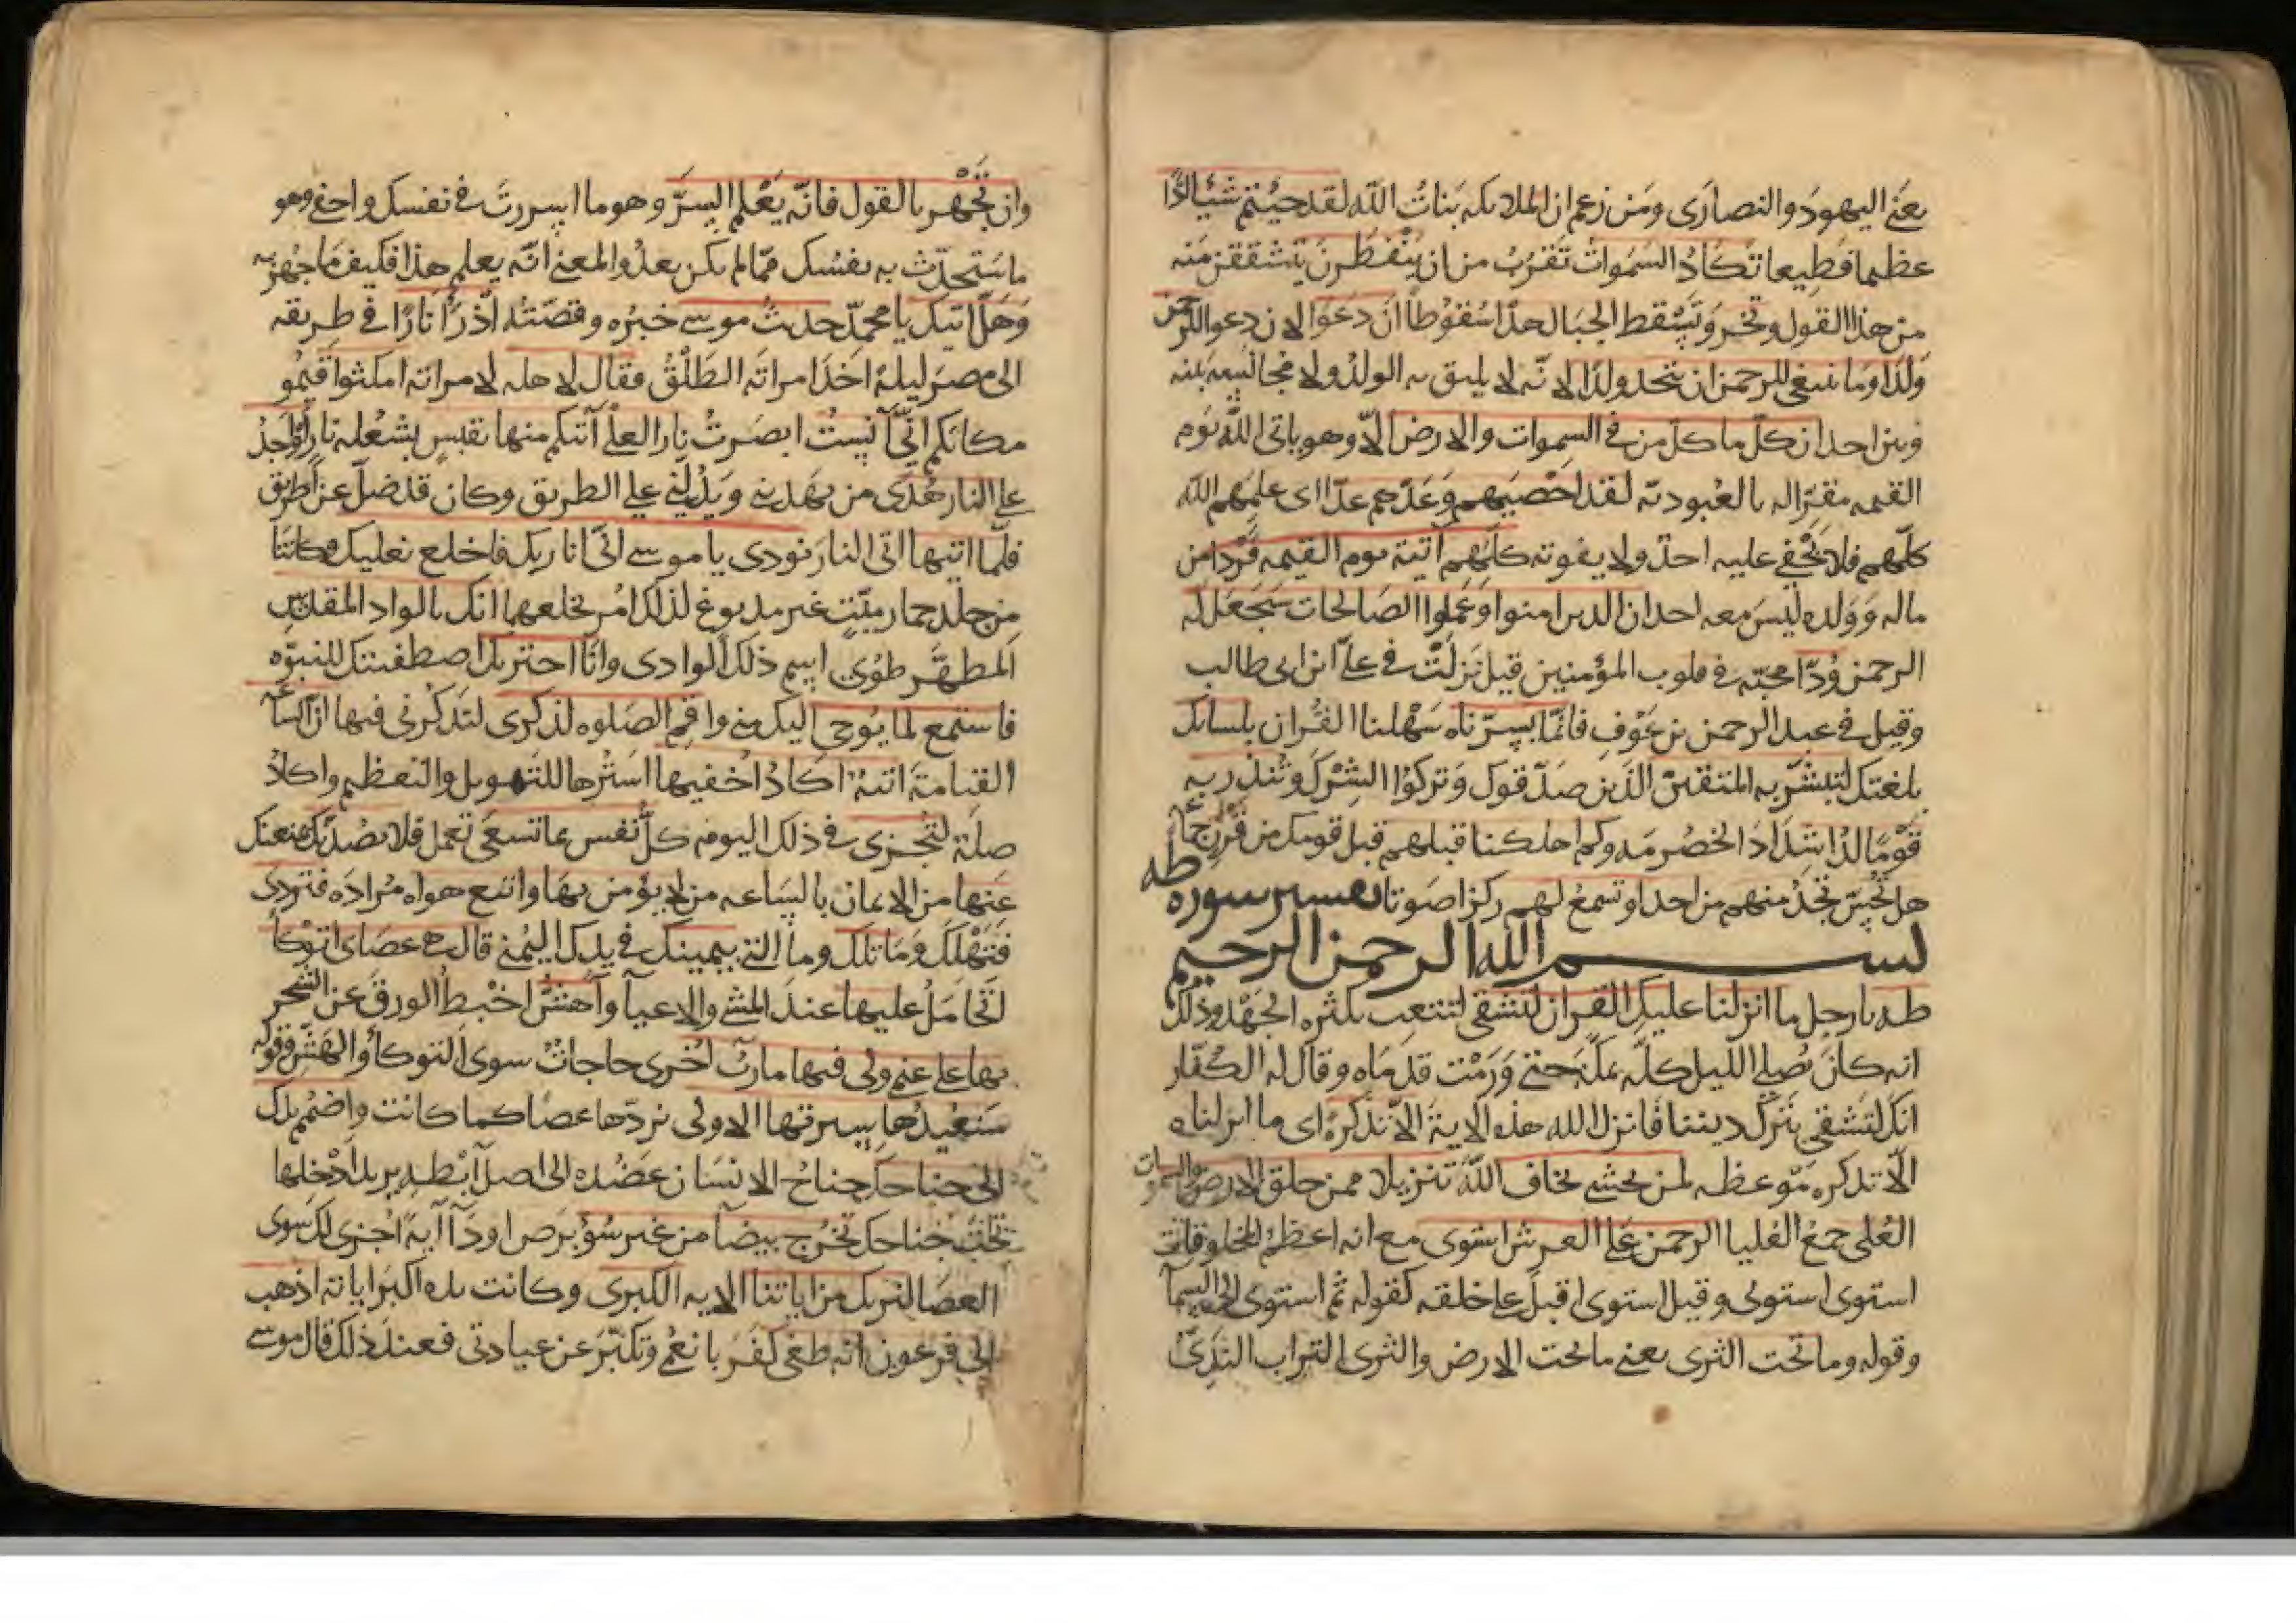 يعني اليهود والنصارى ومن زعم ان الملائكة بنات الله لقد جئتم شيئا ادّا
عظيما فظيعا تكاد السموات تقرب من ان ينفطرن يتشققن منه
من هذا القول وتخر وتسقط الجبال هدّا سقوطا ان دعوا لان دعوا للرحمن
ولدا وما ينبغي للرحمن ان يتخذ ولدا لانّه لا يليق به الولد ولا مجانسة بينه
وبين احد ان كلّ ما كلّ من في السموات والارض الاّ وهو ياتى الله يوم
القيمة مقرّا له بالعبودية لقد احصيهم وعدّهم عدّا اى علمهم الله
كلّهم فلا يخفى عليه احد ولا يفوته كلّهم آتية يوم القيمه فردا من
ماله وولده ليس معه احد ان الذين امنوا وعملوا الصالحات سيجعل له
الرحمن ودّا محبّة في قلوب المؤمنين قيل نزلت في علىّ ابن ابي طالب
وقيل في عبد الرحمن بن عوف فانّما يسّرناه سهلنا القران بلسانك
بلغتك لتبشّر به المتقين الذين صدّقوك وتركوا الشرك وتنذر به
قوما لدّا شداد الخصومة وكم اهلكنا قبلهم قبل قومك من قرن جماعة
هل تحسّ تجد منهم من احد او تسمع لهم ركزا صوتا تفسير سوره طه
بسم الله الرحمن الرحيم
طه يا رجل ما انزلنا عليك القران لتشقى لتتعب بكثره الجهد وذلك
انه كان يصلى الليل كلّه بمكّة حتى ورمت قدماه وقال له الكفّار
انك لتشقى بترك ديننا فانزل الله هذه الاية الاّ تذكرة اى ما انزلناه
الاّ تذكره موعظه لمن يخشى يخاف الله تنزيلا ممن خلق الارض والسموات
العلى جمع العليا الرحمن على العرش استوى مع انه اعظم المخلوقات
استوى استولى وقيل استوى اقبل على خلقه كقوله ثم استوى الى السمآ
وقوله وما تحت الثرى يعنى ما تحت الارض والثرى التراب النديّ
وان تجهر بالقول فانّه يعلم السرّ وهو ما اسررت في نفسك واخفى وهو
ما ستحدّث به نفسك ممّا لم يكن بعد والمعنى انّه يعلم هذا فكيف ما جهر به
وهل اتيك يا محمد حديث موسى خبره وقصّته اذ رأا نارا في طريقه
الى مصر ليلة اخذ امراته الطلق فقال لاهله لامراته امكثوا اقيمو
مكانكم انّي آنست ابصرت نارا لعلّي آتيكم منها بقبس بشعلة نار او اجد
على النار هدى من يهدينى ويدلّني على الطريق وكان قد ضلّ عن الطريق
فلمّا اتيها اتى النار نودى يا موسى انّى انا ربك فاخلع نعليك وكانتا
من جلد حمار ميّت غير مدبوغ لذلك امر بخلعها انك بالواد المقدّس
المطهّر طوى اسم ذلك الوادى وانا اخترتك اصطفيتك للنبوّه
فاستمع لما يوحى اليك منى واقم الصلوه لذكرى لتذكرني فيها انّ الساعة
القيامة اتية اكاد اخفيها استرها للتهويل والتعظيم واكاد
صلة لتجزى في ذلك اليوم كلّ نفس بما تسعى تعمل فلا يصدّنّك يمنعنك
عنها من الايمان بالساعه من لا يؤمن بها واتبع هواه مراده فتردى
فتهلك وما تلك وما التي بيمينك في يدك اليمنى قال هى عصاى اتوكأ
اتحامل عليها عند المشى والاعيآ واهشّ اخبط الورق عن الشجر
بها على غنمى ولى فيها مارب اخرى حاجات سوى التوكأ والهشّ وقوله
سنعيدها سيرتها الاولى نردّها عصا كما كانت واضمم يدك
الى جناحك جناح الانسان عضده الى اصل ابطه يريد ادخلها
تحت جناحك تخرج بيضآ من غير سؤ برص او دآ آية اخرى لك سوى
العصا لنريك من اياتنا الايه الكبرى وكانت يده اكبر اياته اذهب
الى فرعون انه طغى كفر بانعمى وتكبّر عن عبادتى فعند ذلك قال موسى